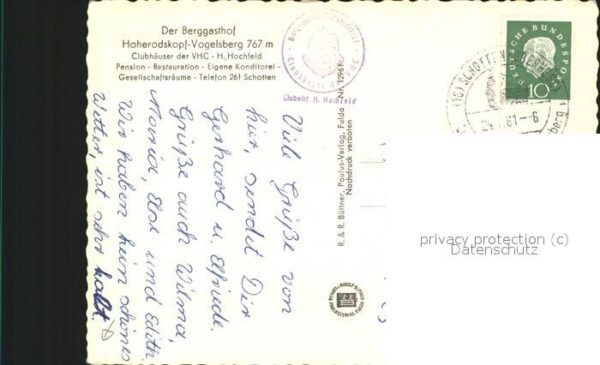 Der Berggasthof
Hoherodskopf-Vogelsberg 767 m
Clubhäuser der VHC - H. Hochfeld
Pension - Restauration - Eigene Konditorei -
Gesellschaftsräume - Telefon 261 Schotten
Clubwirt H. Hochfeld
DEUTSCHE BUNDESPOST
10
61-6
Viele Grüße von
hier, sendet Dir
Gerhard u. Elfriede.
Grüße auch Wilma,
Monika, Else und Edith.
Wir haben kein schönes
Wetter, ist sehr kalt.
R. & R. Büttner, Paulus-Verlag, Fulda
Nachdruck verboten
privacy protection (c)
Datenschutz